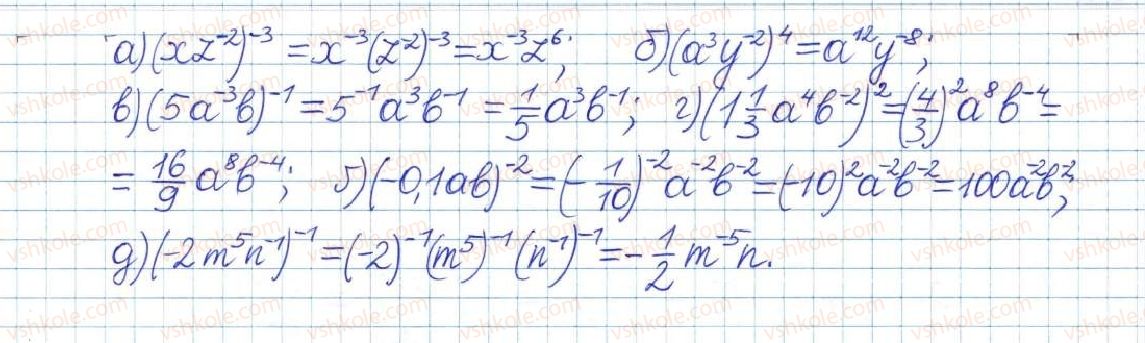 а) (xz⁻²)⁻³ = x⁻³(z⁻²)⁻³ = x⁻³z⁶; б) (a³y⁻²)⁴ = a¹²y⁻⁸;
в) (5a⁻³b)⁻¹ = 5⁻¹a³b⁻¹ = 1/5 a³b⁻¹; г) (1 1/3 a⁴b⁻²)² = (4/3)² a⁸b⁻⁴ =
= 16/9 a⁸b⁻⁴; ґ) (-0,1ab)⁻² = (-1/10)⁻² a⁻²b⁻² = (-10)² a⁻²b⁻² = 100a⁻²b⁻²;
д) (-2m⁵n⁻¹)⁻¹ = (-2)⁻¹ (m⁵)⁻¹ (n⁻¹)⁻¹ = -1/2 m⁻⁵n.
vshkole.com